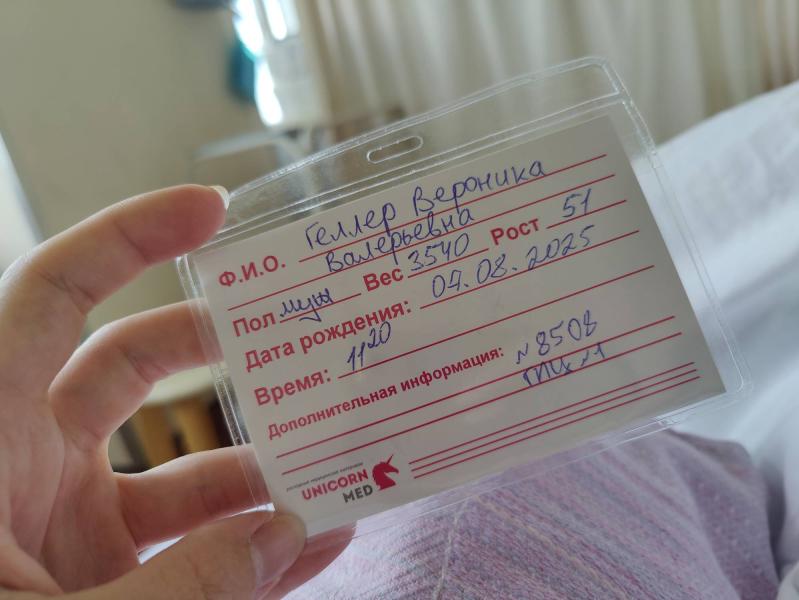 Геллер Вероника
Ф.И.О. Валерьевна
Пол муж Вес 3540 Рост 51
Дата рождения: 04.08.2025
Время: 11 20
Дополнительная информация: N 8508
ПЦ N1
UNICORN
MED